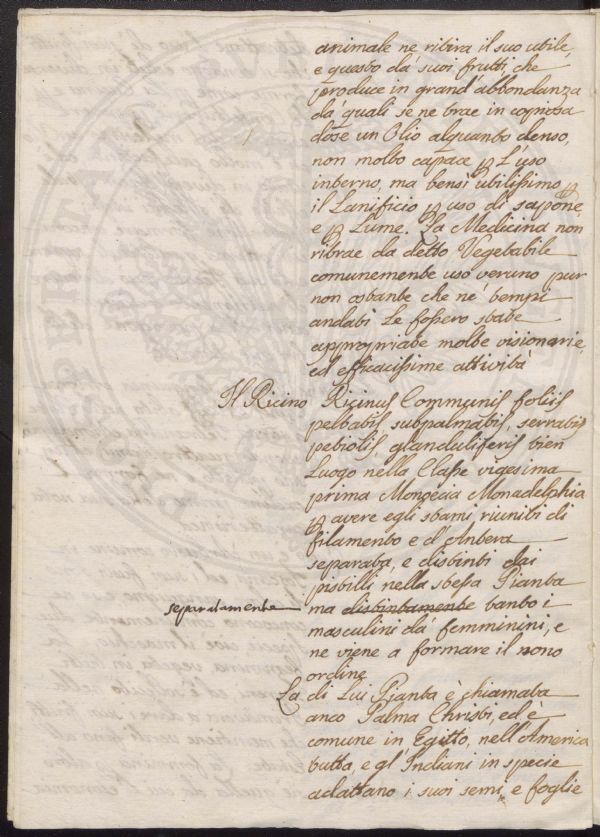 animale ne ritira il suo utile,
e questo da' suoi frutti, che
produce in grand'abbondanza
da' quali se ne trae in copiosa
dose un Olio alquanto denso,
non molto capace p L'uso
interno, ma bensì utilissimo p
il Lanificio p uso di sapone,
e p Lume. La Medicina non
ritrae da detto Vegetabile
comunemente uso veruno pur
non ostante che ne' tempi
andati Le fossero state
appropriate molte visionarie,
ed efficacissime attività
Il Ricino Ricinus Communis foliis
peltatis, subpalmatis, serratis
petiolis, glanduliferis vien
Luogo nella Classe vigesima
prima Monoecia Monadelphia
p avere egli stami riuniti di
filamento e d'Antera
separata, e distinti dai
pistilli nella stessa Pianta
separatamente ma distintamente tanto i
masculini da' femminini, e
ne viene a formare il nono
ordine
La di Lui Pianta è chiamata
anco Palma Christi, ed è
comune in Egitto, nell'America
tutta, e gl'Indiani in specie
adattano i suoi semi, e foglie